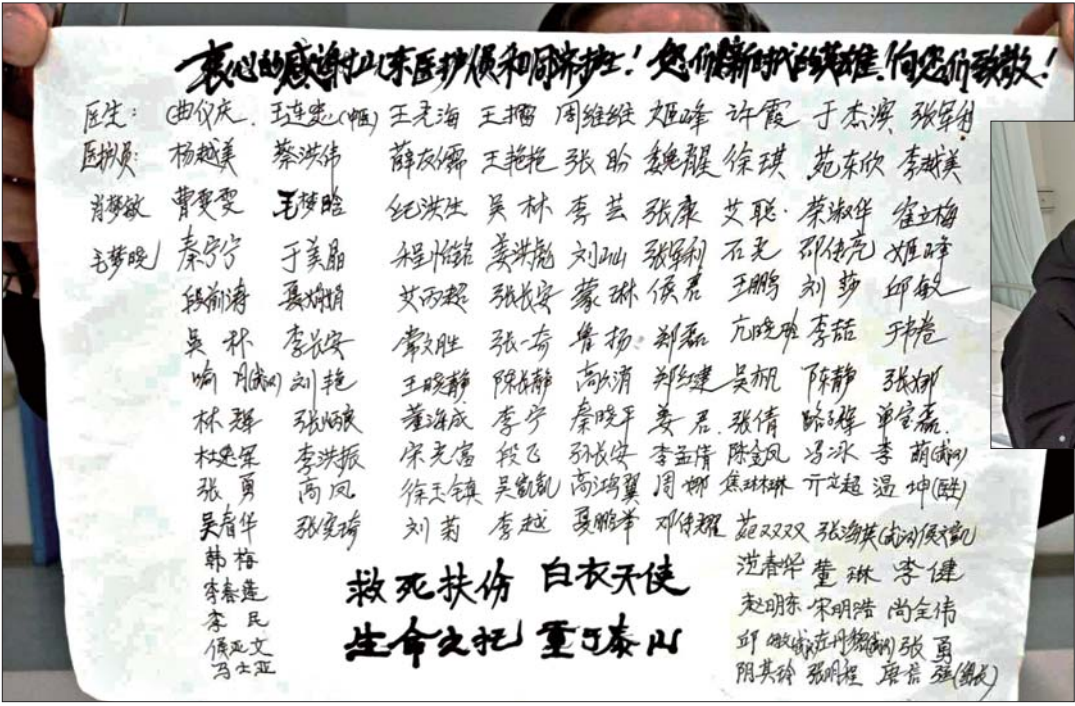 衷心的感谢山东医护人员和同济护士！您们是新时代的英雄，向您们致敬！
医生： 曲仪庆、王连忠(中医) 王光海 王 周维维 姬峰 许霞 于杰滨 张军利
医护员： 杨越美 蔡洪伟 薛友儒 王艳艳 张盼 魏醒 徐琪 苑东欣 李越美
肖梦敏 曹雯雯 毛梦晗 纪洪生 吴林 李芸 张康 艾聪 荣淑华 崔立梅
毛梦晓 秦宁宁 于美晶 程怡铭 姜洪彪 刘灿 张军利 石光 邵传亮 姬峰
段前涛 聂娟娟 艾丙超 张长安 蒙琳 侯君 王鹏 刘莎 邱敏
吴林 李长安 常文胜 张一奇 鲁扬 郑磊 亢晓明 李喆
喻月(武汉) 刘艳 王晓静 陈长静 高消 郑红建 吴帆 陈静 张娜
林辉 张炳良 董海成 李宁 秦晓平 姜君 张倩 单宝磊
杜军 李洪振 宋光富 段飞 孙长安 李孟倩 陈金凤 冯冰 李萌(武汉)
张勇 高凤 徐玉镇 吴凯凯 高鸿翼 周娜 焦琳琳 亓立超 温坤
吴春华 张宪琦 刘菊 李越 聂鹏举 邓传耀 苑双双 张海英(武汉) 侯文凯
韩梅 范春华 董琳 李健
李春莲 救死扶伤 白衣天使 赵明东 宋明浩 尚全伟
李民 邱敏 张勇
侯亚文 生命之托 重于泰山 阴其玲 张明程 唐信强(组长)
马士亚